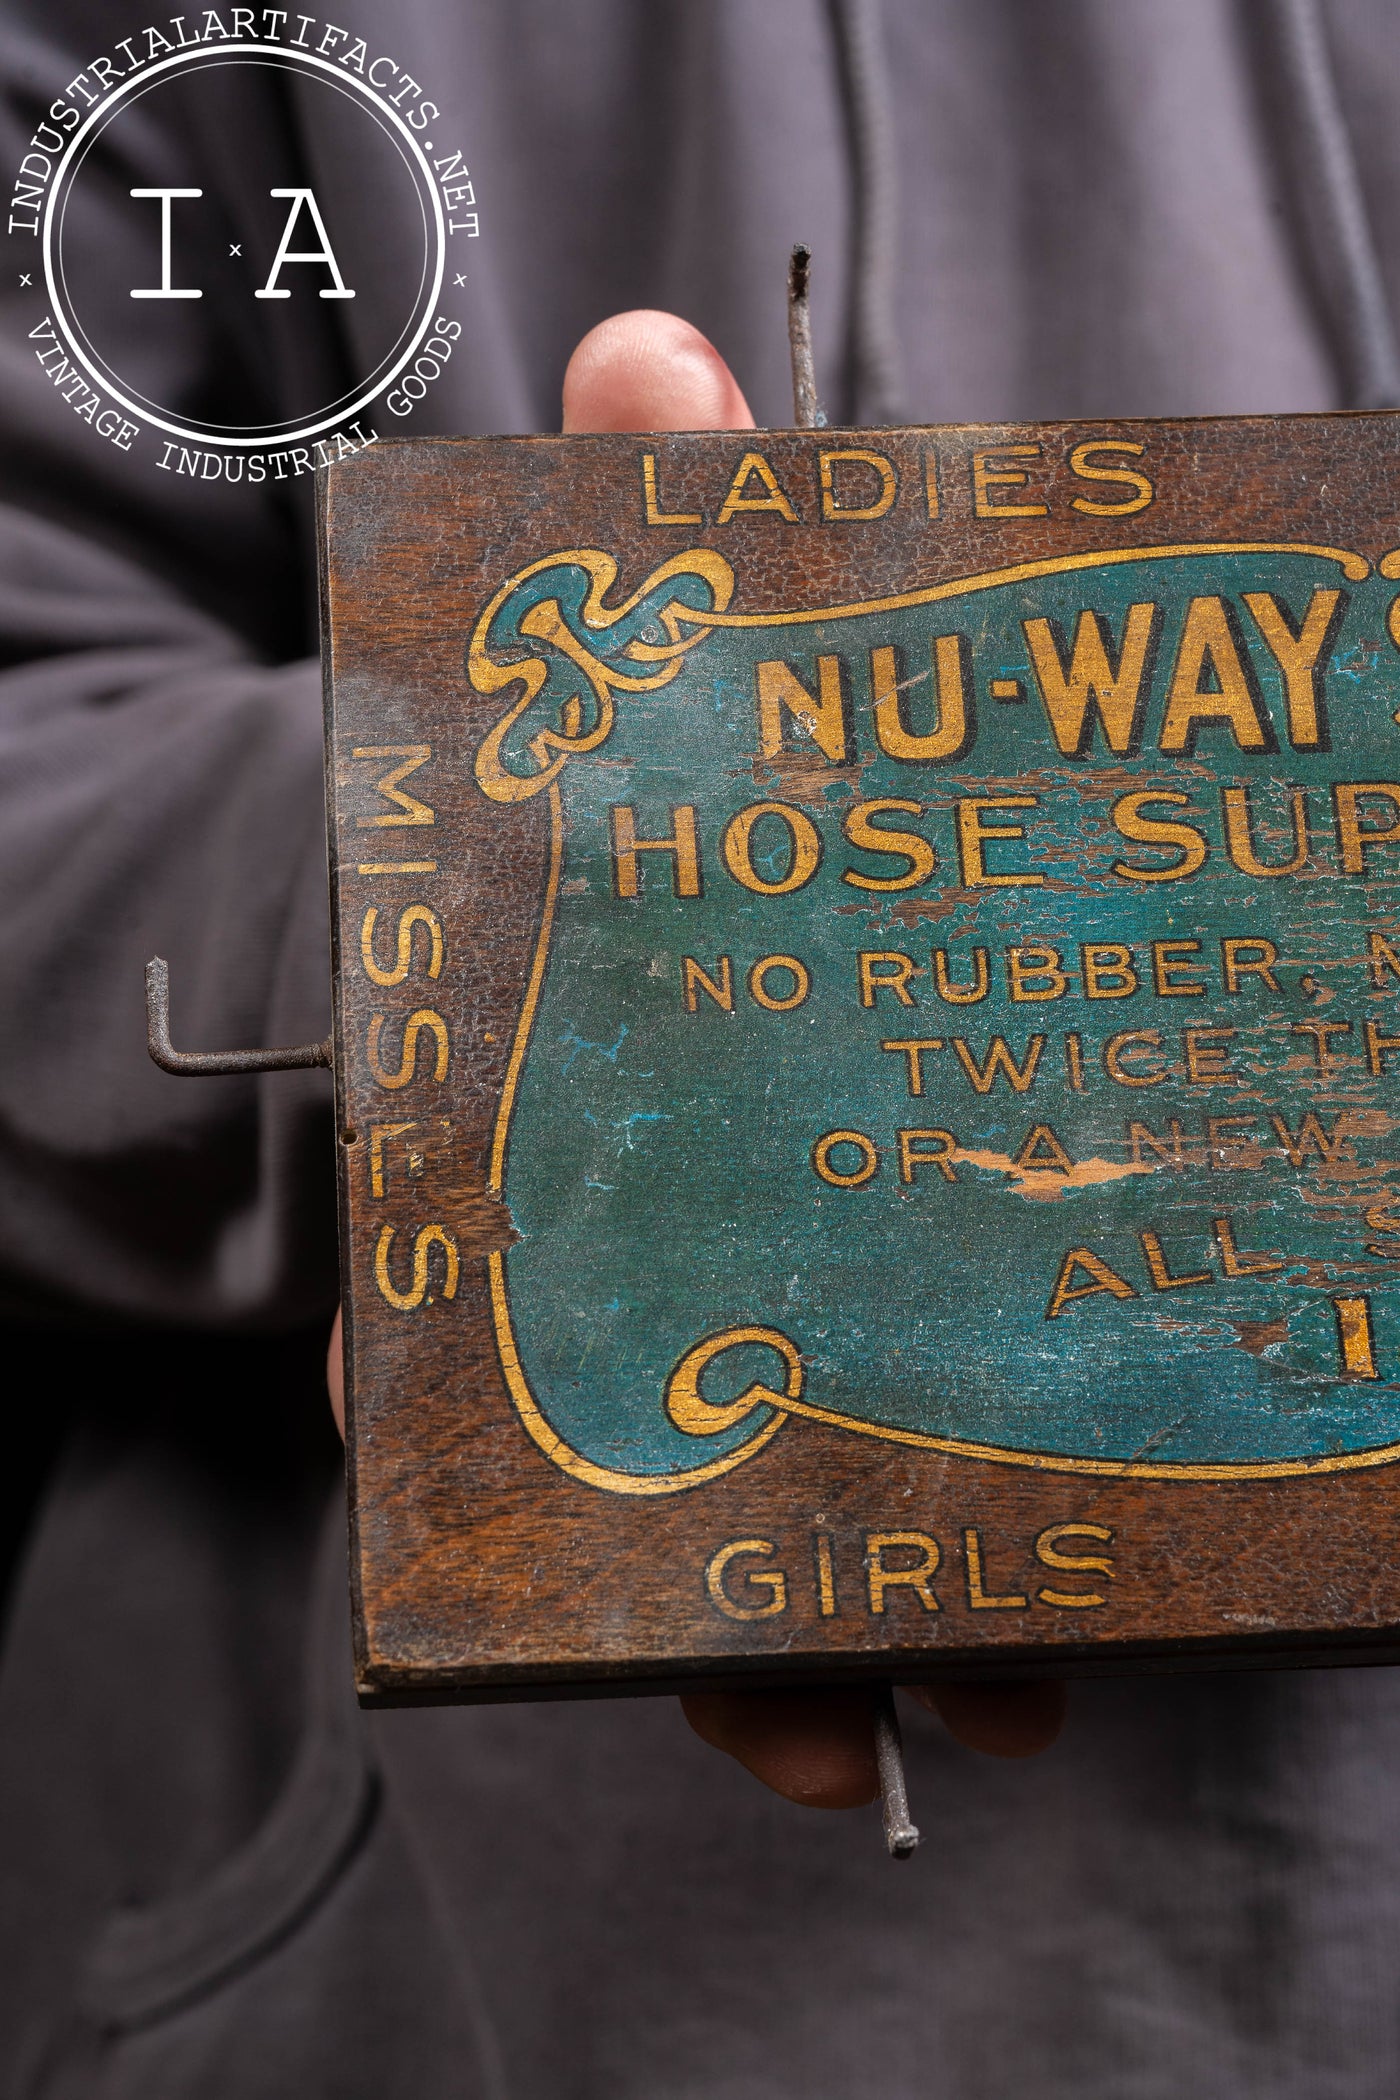 INDUSTRIALARTIFACTS.NET
I x A
x VINTAGE INDUSTRIAL GOODS x
LADIES
MISSES
NU-WAY
HOSE SUP
NO RUBBER, N
TWICE TH
OR A NEW
ALL S
1
GIRLS